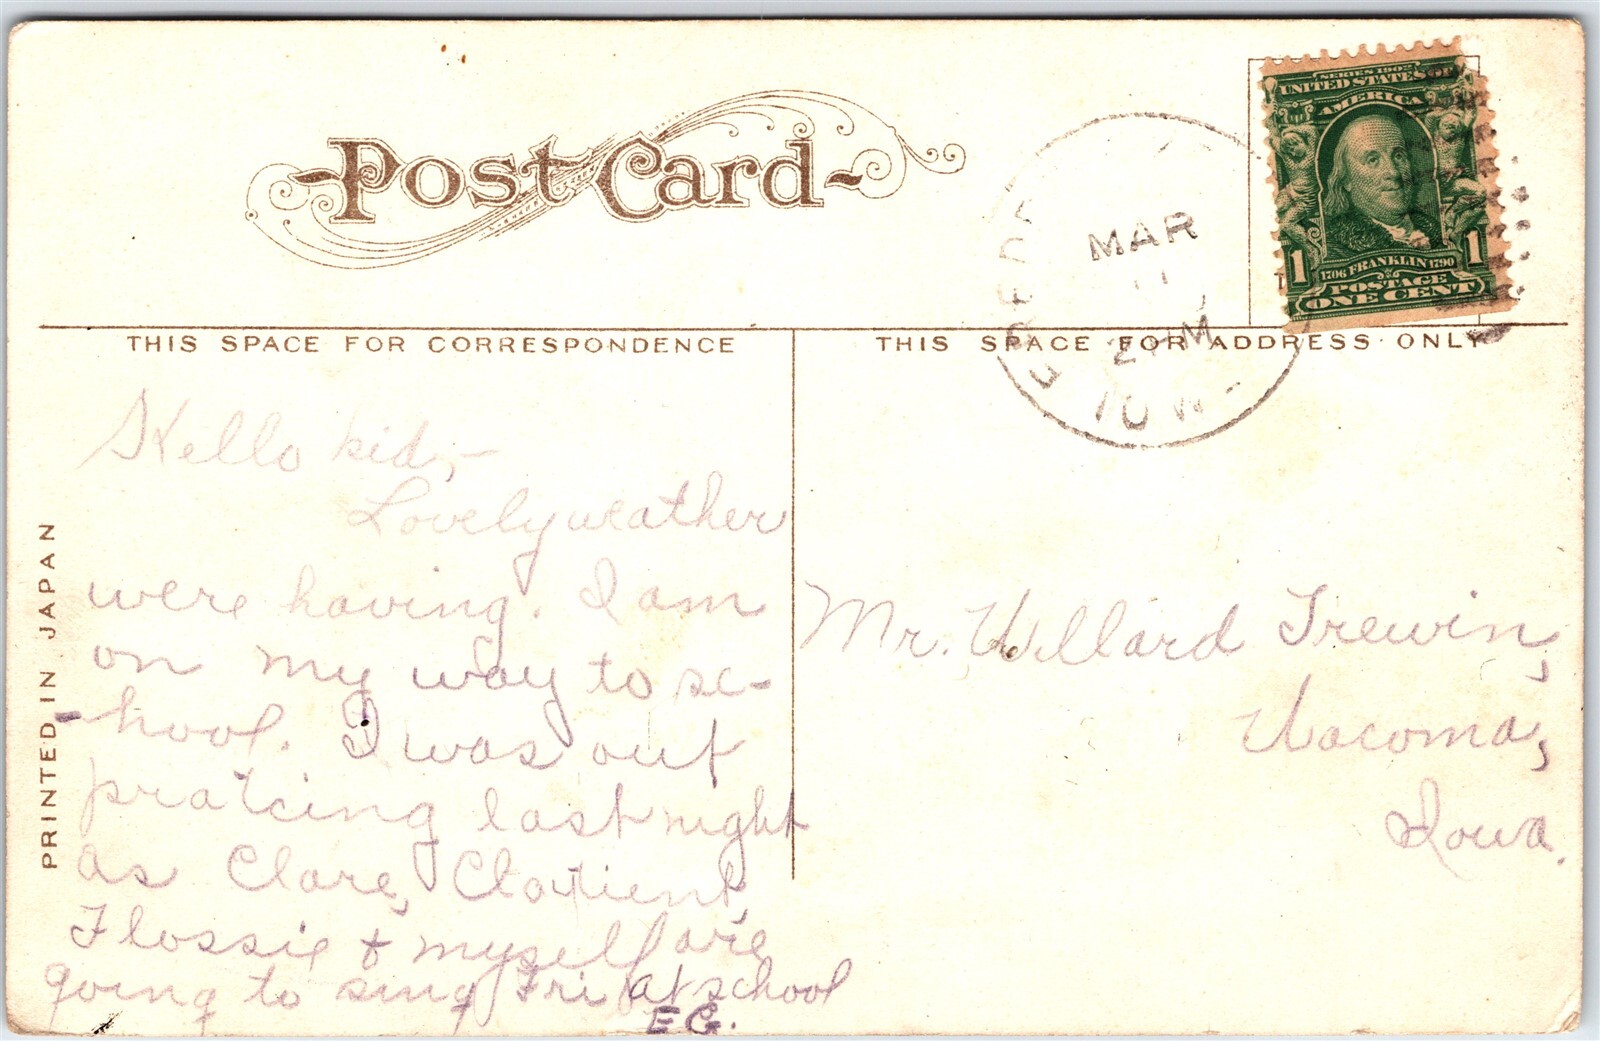 Post Card
SERIES 1902
UNITED STATES OF
AMERICA
1706 FRANKLIN 1790
1 1
POSTAGE
ONE CENT
MAR
11
2 M
IOW
THIS SPACE FOR CORRESPONDENCE
THIS SPACE FOR ADDRESS ONLY
PRINTED IN JAPAN
Hello kid,-
Lovely weather
were having. I am
on my way to sc-
-hool. I was out
pratcing last night
as Clare,
Flossie & myself are
going to sing Fri at school
EG.
Mr. Willard Trewin,
Wacoma,
Iowa.